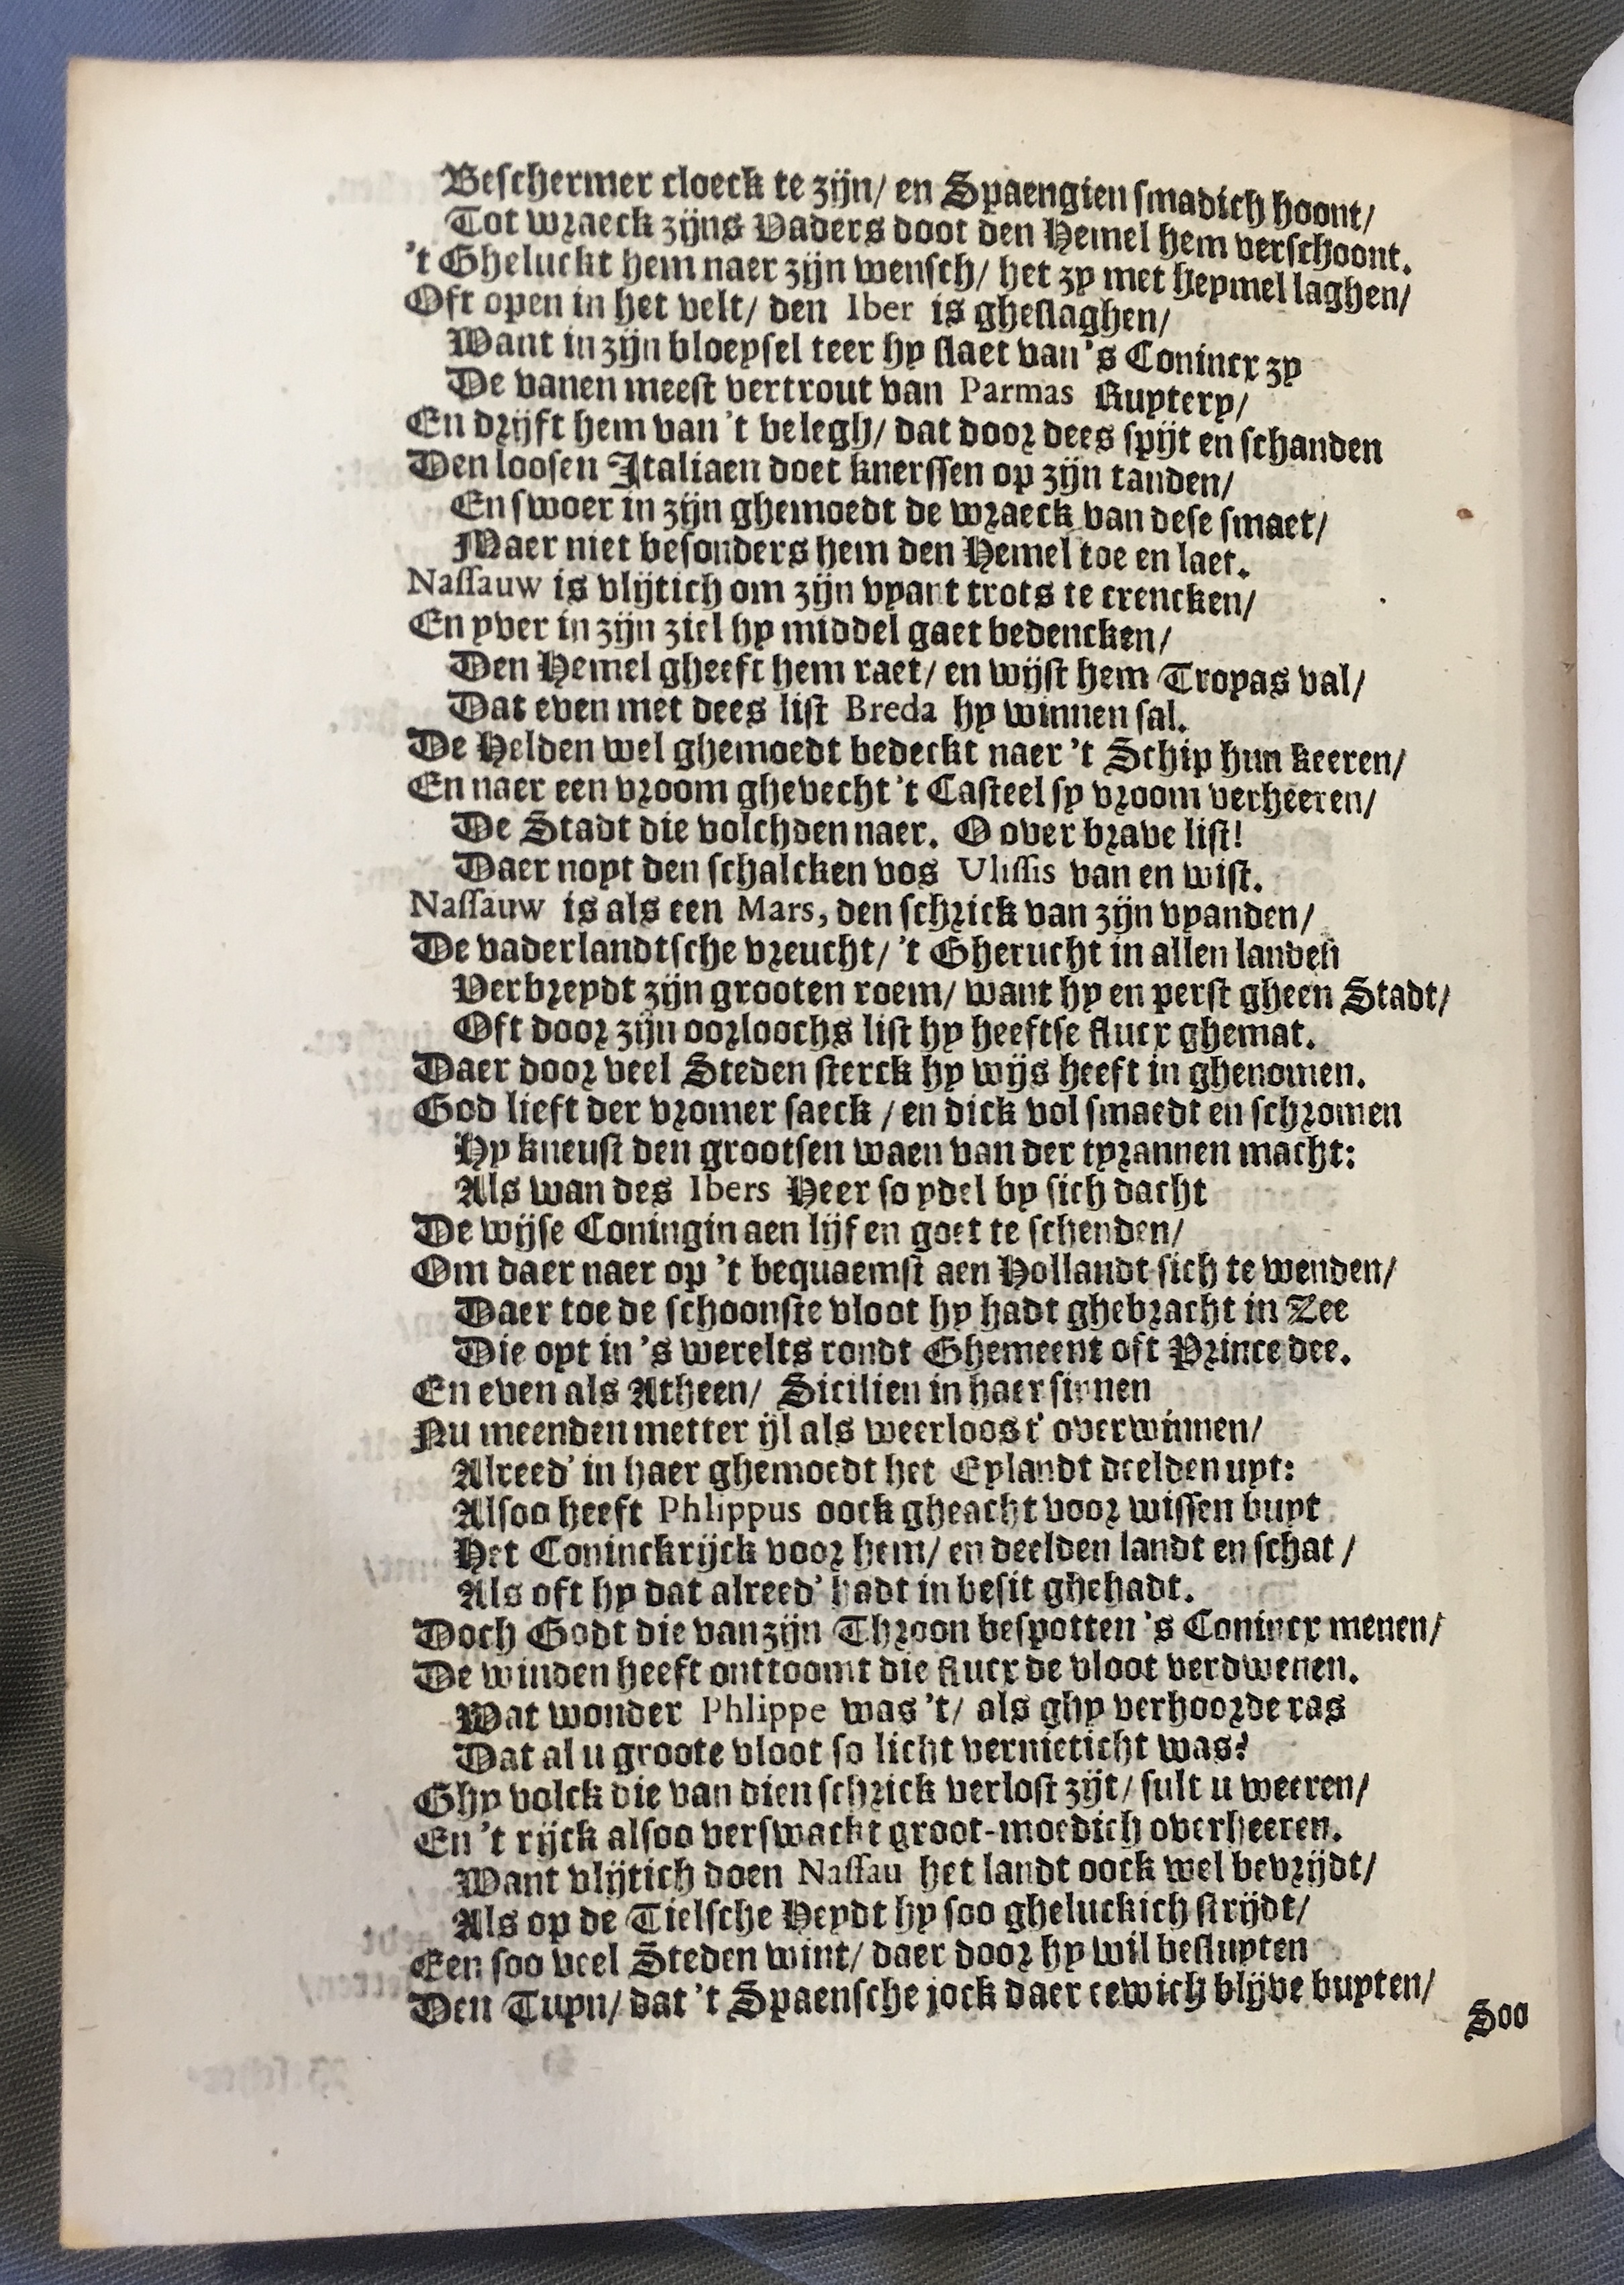 Beschermer cloeck te zijn/ en Spaengien smadich hoont/
Tot wraeck zijns Vaders doot den Hemel hem verschoont.
't Gheluckt hem naer zijn wensch/ het zy met heymel laghen/
Oft open in het velt/ den Iber is gheslaghen/
Want in zijn bloeysel teer hy slaet van 's Conincx zy
De vanen meest vertrout van Parmas Ruytery/
En drijft hem van 't belegh/ dat door dees spijt en schanden
Den loosen Italiaen doet knerssen op zijn tanden/
En swoer in zijn ghemoedt de wraeck van dese smaet/
Maer niet besonders hem den Hemel toe en laet.
Nassauw is vlijtich om zijn vyant trots te crencken/
En yver in zijn ziel hy middel gaet bedencken/
Den Hemel gheeft hem raet/ en wijst hem Troyas val/
Dat even met dees list Breda hy winnen sal.
De Helden wel ghemoedt bedeckt naer 't Schip hun keeren/
En naer een vroom ghevecht 't Casteel sy vroom verheeren/
De Stadt die volchden naer. O over brave list!
Daer noyt den schalcken vos Ulissis van en wist.
Nassauw is als een Mars, den schrick van zijn vyanden/
De vaderlandtsche vreucht/ 't Gherucht in allen landen
Verbreydt zijn grooten roem/ want hy en perst gheen Stadt/
Oft door zijn oorloochs list hy heeftse flucx ghemat.
Daer door veel Steden sterck hy wijs heeft in ghenomen.
God lieft der vromer saeck / en dick vol smaedt en schromen
Hy kneust den grootsen waen van der tyrannen macht:
Als wan des Ibers Heer so ydel by sich dacht
De wijse Coningin aen lijf en goet te schenden/
Om daer naer op 't bequaemst aen Hollandt sich te wenden/
Daer toe de schoonste vloot hy hadt ghebracht in Zee
Die oyt in 's werelts rondt Ghemeent oft Prince dee.
En even als Atheen/ Sicilien in haer sinnen
Nu meenden metter ijl als weerloos t' overwinnen/
Alreed' in haer ghemoedt het Eylandt deelden uyt:
Alsoo heeft Phlippus oock gheacht voor wissen buyt
Het Coninckrijck voor hem/ en deelden landt en schat /
Als oft hy dat alreed' hadt in besit ghehadt.
Doch Godt die van zijn Throon bespotten 's Conincx menen/
De winden heeft onttoomt die flucx de vloot verdwenen.
Wat wonder Phlippe was 't/ als ghy verhoorde ras
Dat al u groote vloot so licht vernieticht was?
Ghy volck die van dien schrick verlost zijt/ sult u weeren/
En 't rijck alsoo verswackt groot-moedich overheeren.
Want vlijtich doen Nassau het landt oock wel bevrijdt/
Als op de Tielsche Heydt hy soo gheluckich strijdt/
Een soo veel Steden wint/ daer door hy wil besluyten
Den Tuyn/ dat 't Spaensche jock daer eewich blijve buyten/
Soo